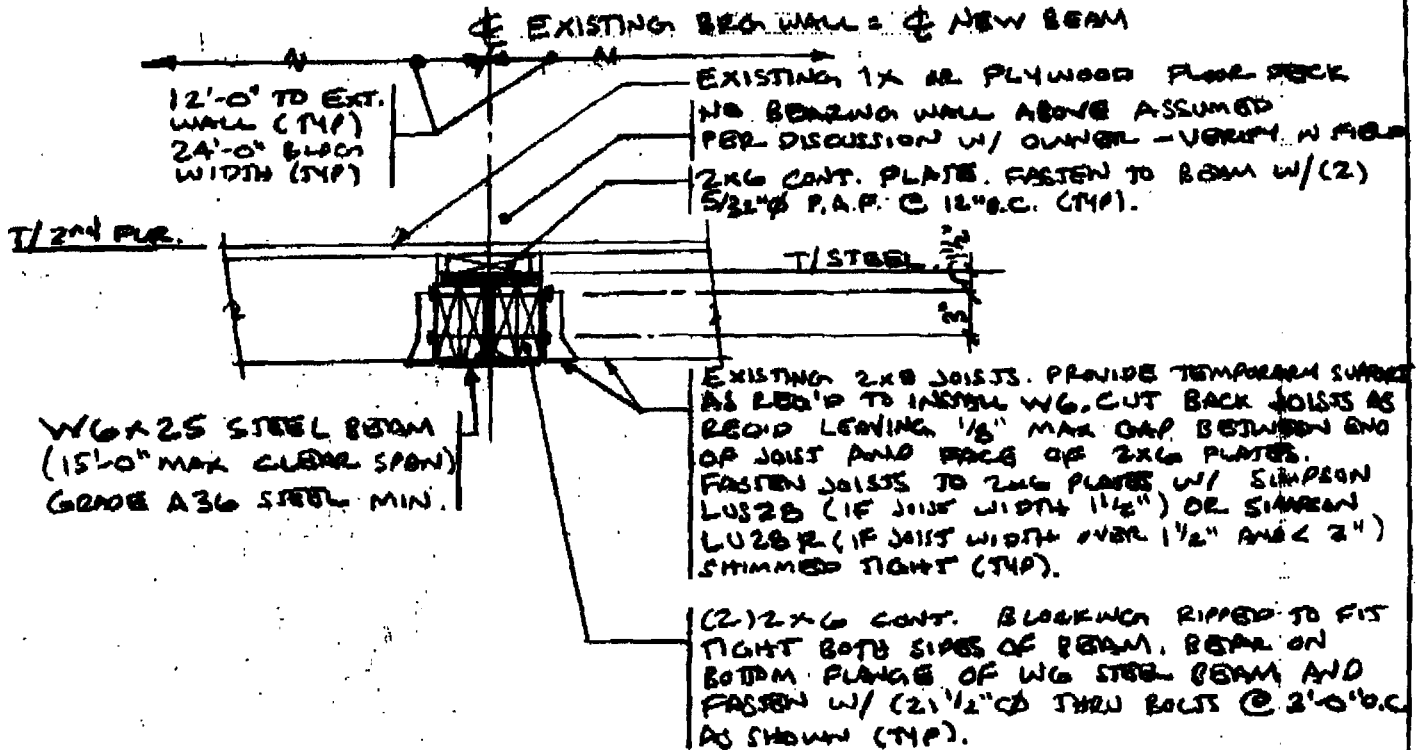 ℄ EXISTING BRG WALL = ℄ NEW BEAM
12'-0" TO EXT.
WALL (TYP)
24'-0" BLDG
WIDTH (TYP)
EXISTING 1X OR PLYWOOD FLOOR DECK
NO BEARING WALL ABOVE ASSUMED
PER DISCUSSION W/ OWNER - VERIFY IN FIELD
2X6 CONT. PLATE. FASTEN TO BEAM W/(2)
5/32"Ø P.A.F. @ 12"O.C. (TYP).
T/2nd FLR.
T/STEEL
1 1/2"
3"
W6X25 STEEL BEAM
(15'-0" MAX CLEAR SPAN)
GRADE A36 STEEL MIN.
EXISTING 2X8 JOISTS. PROVIDE TEMPORARY SUPPORT
AS REQ'D TO INSTALL W6. CUT BACK JOISTS AS
REQ'D LEAVING 1/8" MAX GAP BETWEEN END
OF JOIST AND FACE OF 2X6 PLATES.
FASTEN JOISTS TO 2X6 PLATES W/ SIMPSON
LUS28 (IF JOIST WIDTH 1 1/2") OR SIMPSON
LU28R (IF JOIST WIDTH OVER 1 1/2" AND < 2")
SHIMMED TIGHT (TYP).
(2) 2X6 CONT. BLOCKING RIPPED TO FIT
TIGHT BOTH SIDES OF BEAM. BEAR ON
BOTTOM FLANGE OF W6 STEEL BEAM AND
FASTEN W/ (2) 1/2"Ø THRU BOLTS @ 2'-0"O.C.
AS SHOWN (TYP).